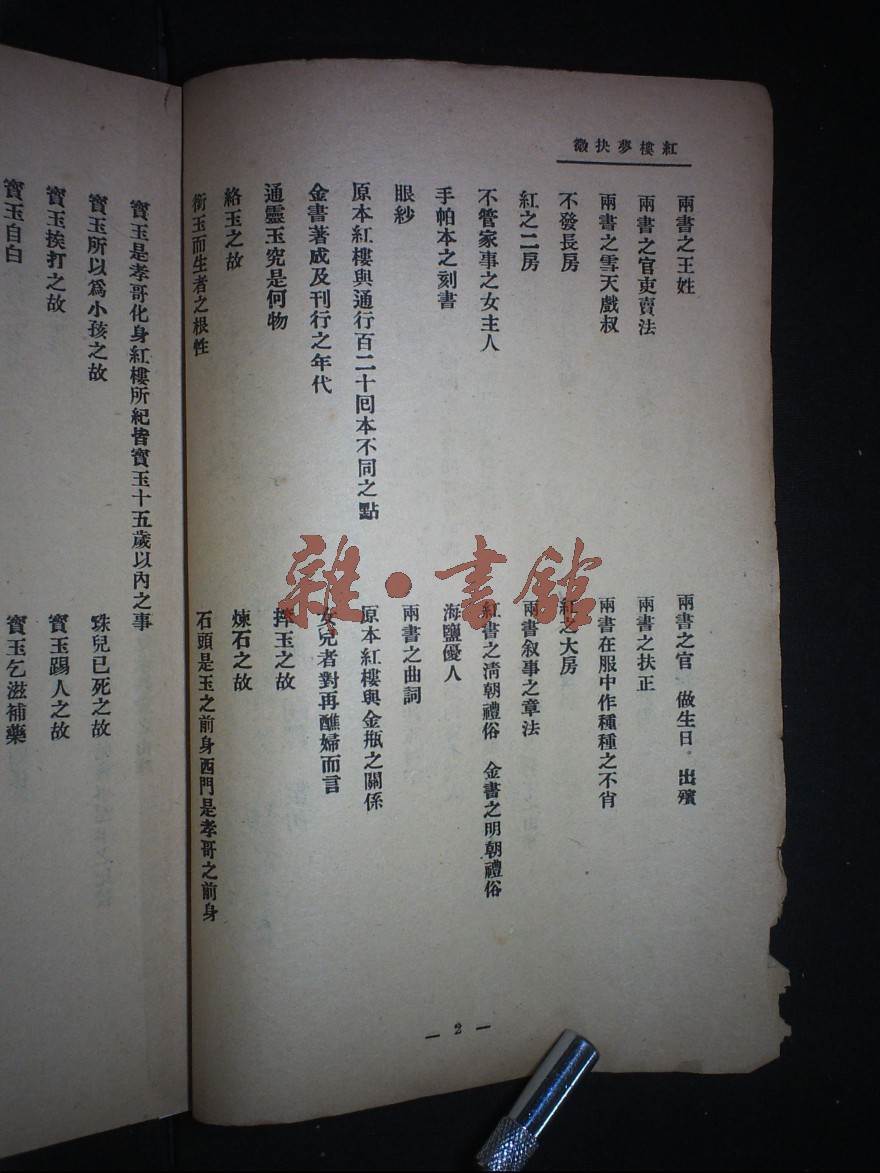 紅樓夢抉微
兩書之王姓
兩書之官　做生日．出殯
兩書之官吏賣法
兩書之扶正
兩書之雪天戲叔
兩書在服中作種種之不肖
不發長房
紅之大房
紅之二房
兩書叙事之章法
不管家事之女主人
紅書之淸朝禮俗　金書之明朝禮俗
手帕本之刻書
海鹽優人
眼紗
兩書之曲詞
原本紅樓與通行百二十囘本不同之點
原本紅樓與金瓶之關係
金書著成及刊行之年代
女兒者對再醮婦而言
通靈玉究是何物
摔玉之故
絡玉之故
煉石之故
銜玉而生者之根性
石頭是玉之前身西門是孝哥之前身
寳玉是孝哥化身紅樓所紀皆寳玉十五歲以內之事
寳玉所以爲小孩之故
珠兒已死之故
寳玉挨打之故
寳玉踢人之故
寳玉自白
寳玉乞滋補藥
— 2 —
雜·書館